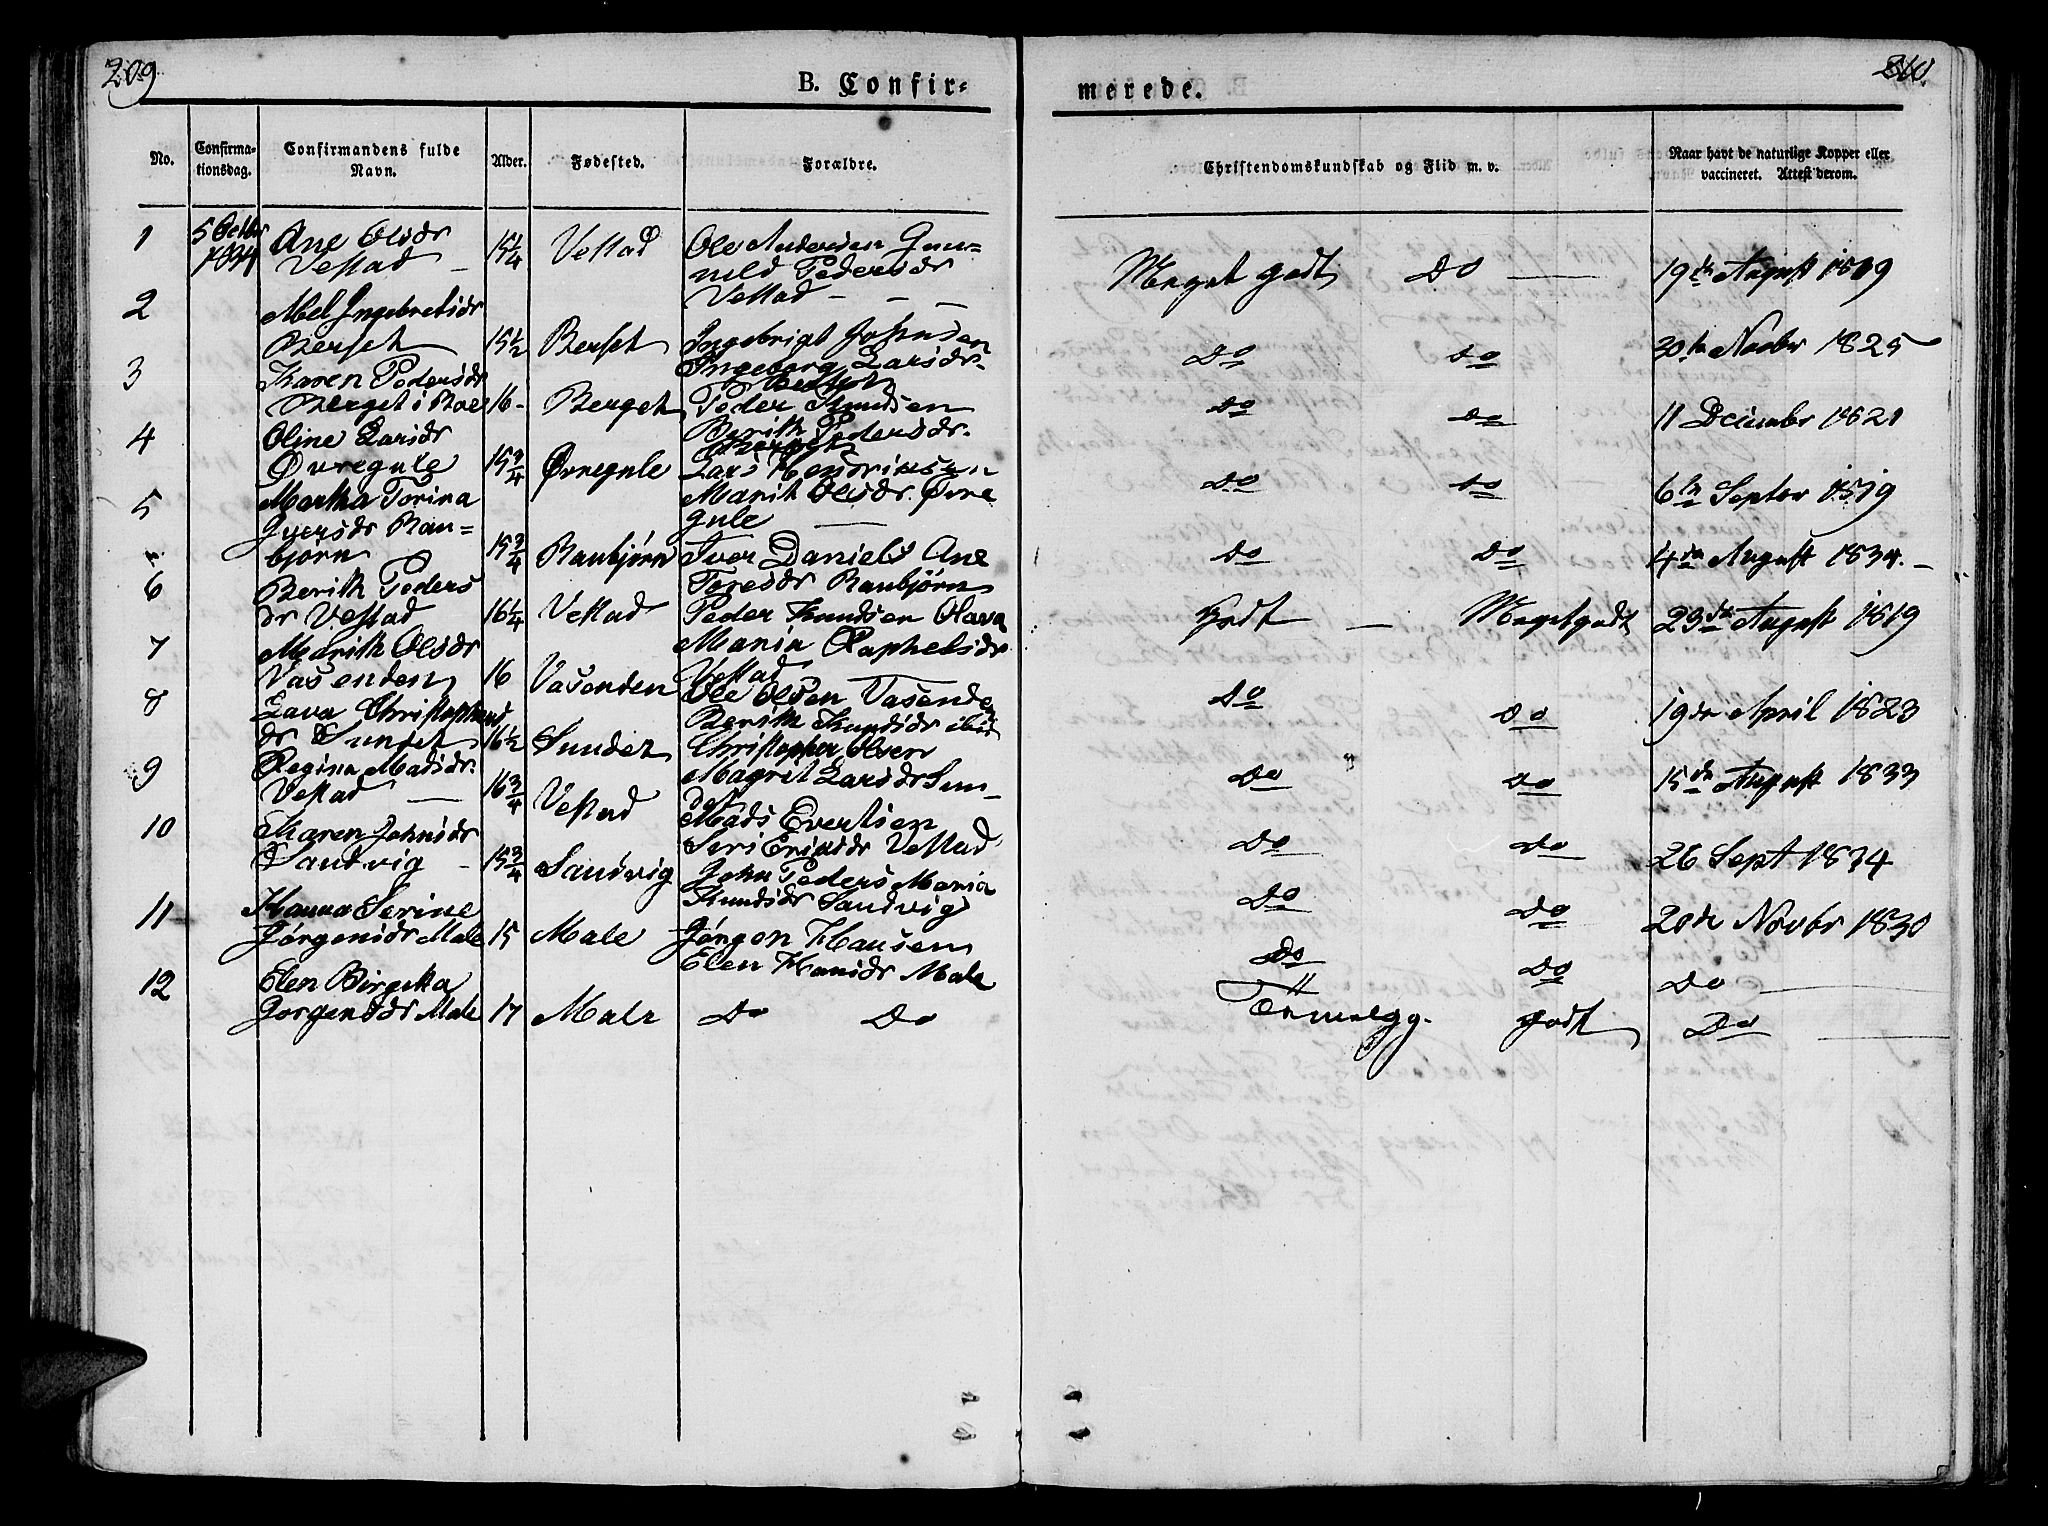 209
B. Confir=
No.
Confirma-
tionsdag.
Confirmandens fulde
Navn.
Alder.
Fødested.
Forældre.
1
5 Octbr
1834
Ane Olsdr
Vestad —
15 1/4
Vestad
Ole Andersen Gun-
nild Pedersdr
Vestad — — —
2
Abel Ingebretsdr
Berset
15 1/2
Berset
Ingebrigt Johnsen
Ingeborg Larsdr
Berset
3
Karen Pedersdr
Berget i Boe
16 -
Berget
Peder Knudsen
Berith Pedersdr.
4
Oline Larsdr
Øvregule
15 3/4
Øvregule
Lars Hendriksen
Marith Olsdr. Øvre
gule —
5
Martha Torina
Jversdr Rau=
bjørn
15 3/4
Raubjørn
Iver Daniels Ane
Toresdr Raubjørn
6
Berith Peders
dr Vestad
16 1/4
Vestad
Peder Knudsen Olava
Maria Raphelsdr
Vestad
7
Marith Olsdr
Vasenden
16
Vasenden
Ole Olsen Vasende
Berith Knudsdr ibid
8
Lava Christophersd
dr Sundet
16 1/2
Sundet
Christopher Olsen
Magret Larsdr Sun-
det
9
Regina Madsdr.
Vestad —
16 3/4
Vestad
Mads Evertsen
Seri Eriksdr Vestad
10
Karen Johnsdr
Sandvig -
15 3/4
Sandvig
John Peders Maria
Knudsdr Sandvig
11
Hanna Serine
Jørgensdr Male
15
Male
Jørgen Hansen
Elen Hansdr Male
12
Elen Birgitha
Jørgensdr Male
17
Male
Do Do
210
merede.
Christendomskundskab og Flid m. v.
Naar havt de naturlige Kopper eller
vaccineret. Attest derom.
Meget godt Do — 19de August 1819
Do Do 30te Novbr 1825
Do Do 11 December 1821
Do Do 6te Septbr 1819
Do Do 4de August 1834. -
Godt — Megetgodt 23de August 1819
Do Do 19de April 1823
Do Do 15de August 1833
Do Do 26 Sept 1834
Do Do 20de Novbr 1830
Do Do Do —
Godt Do —